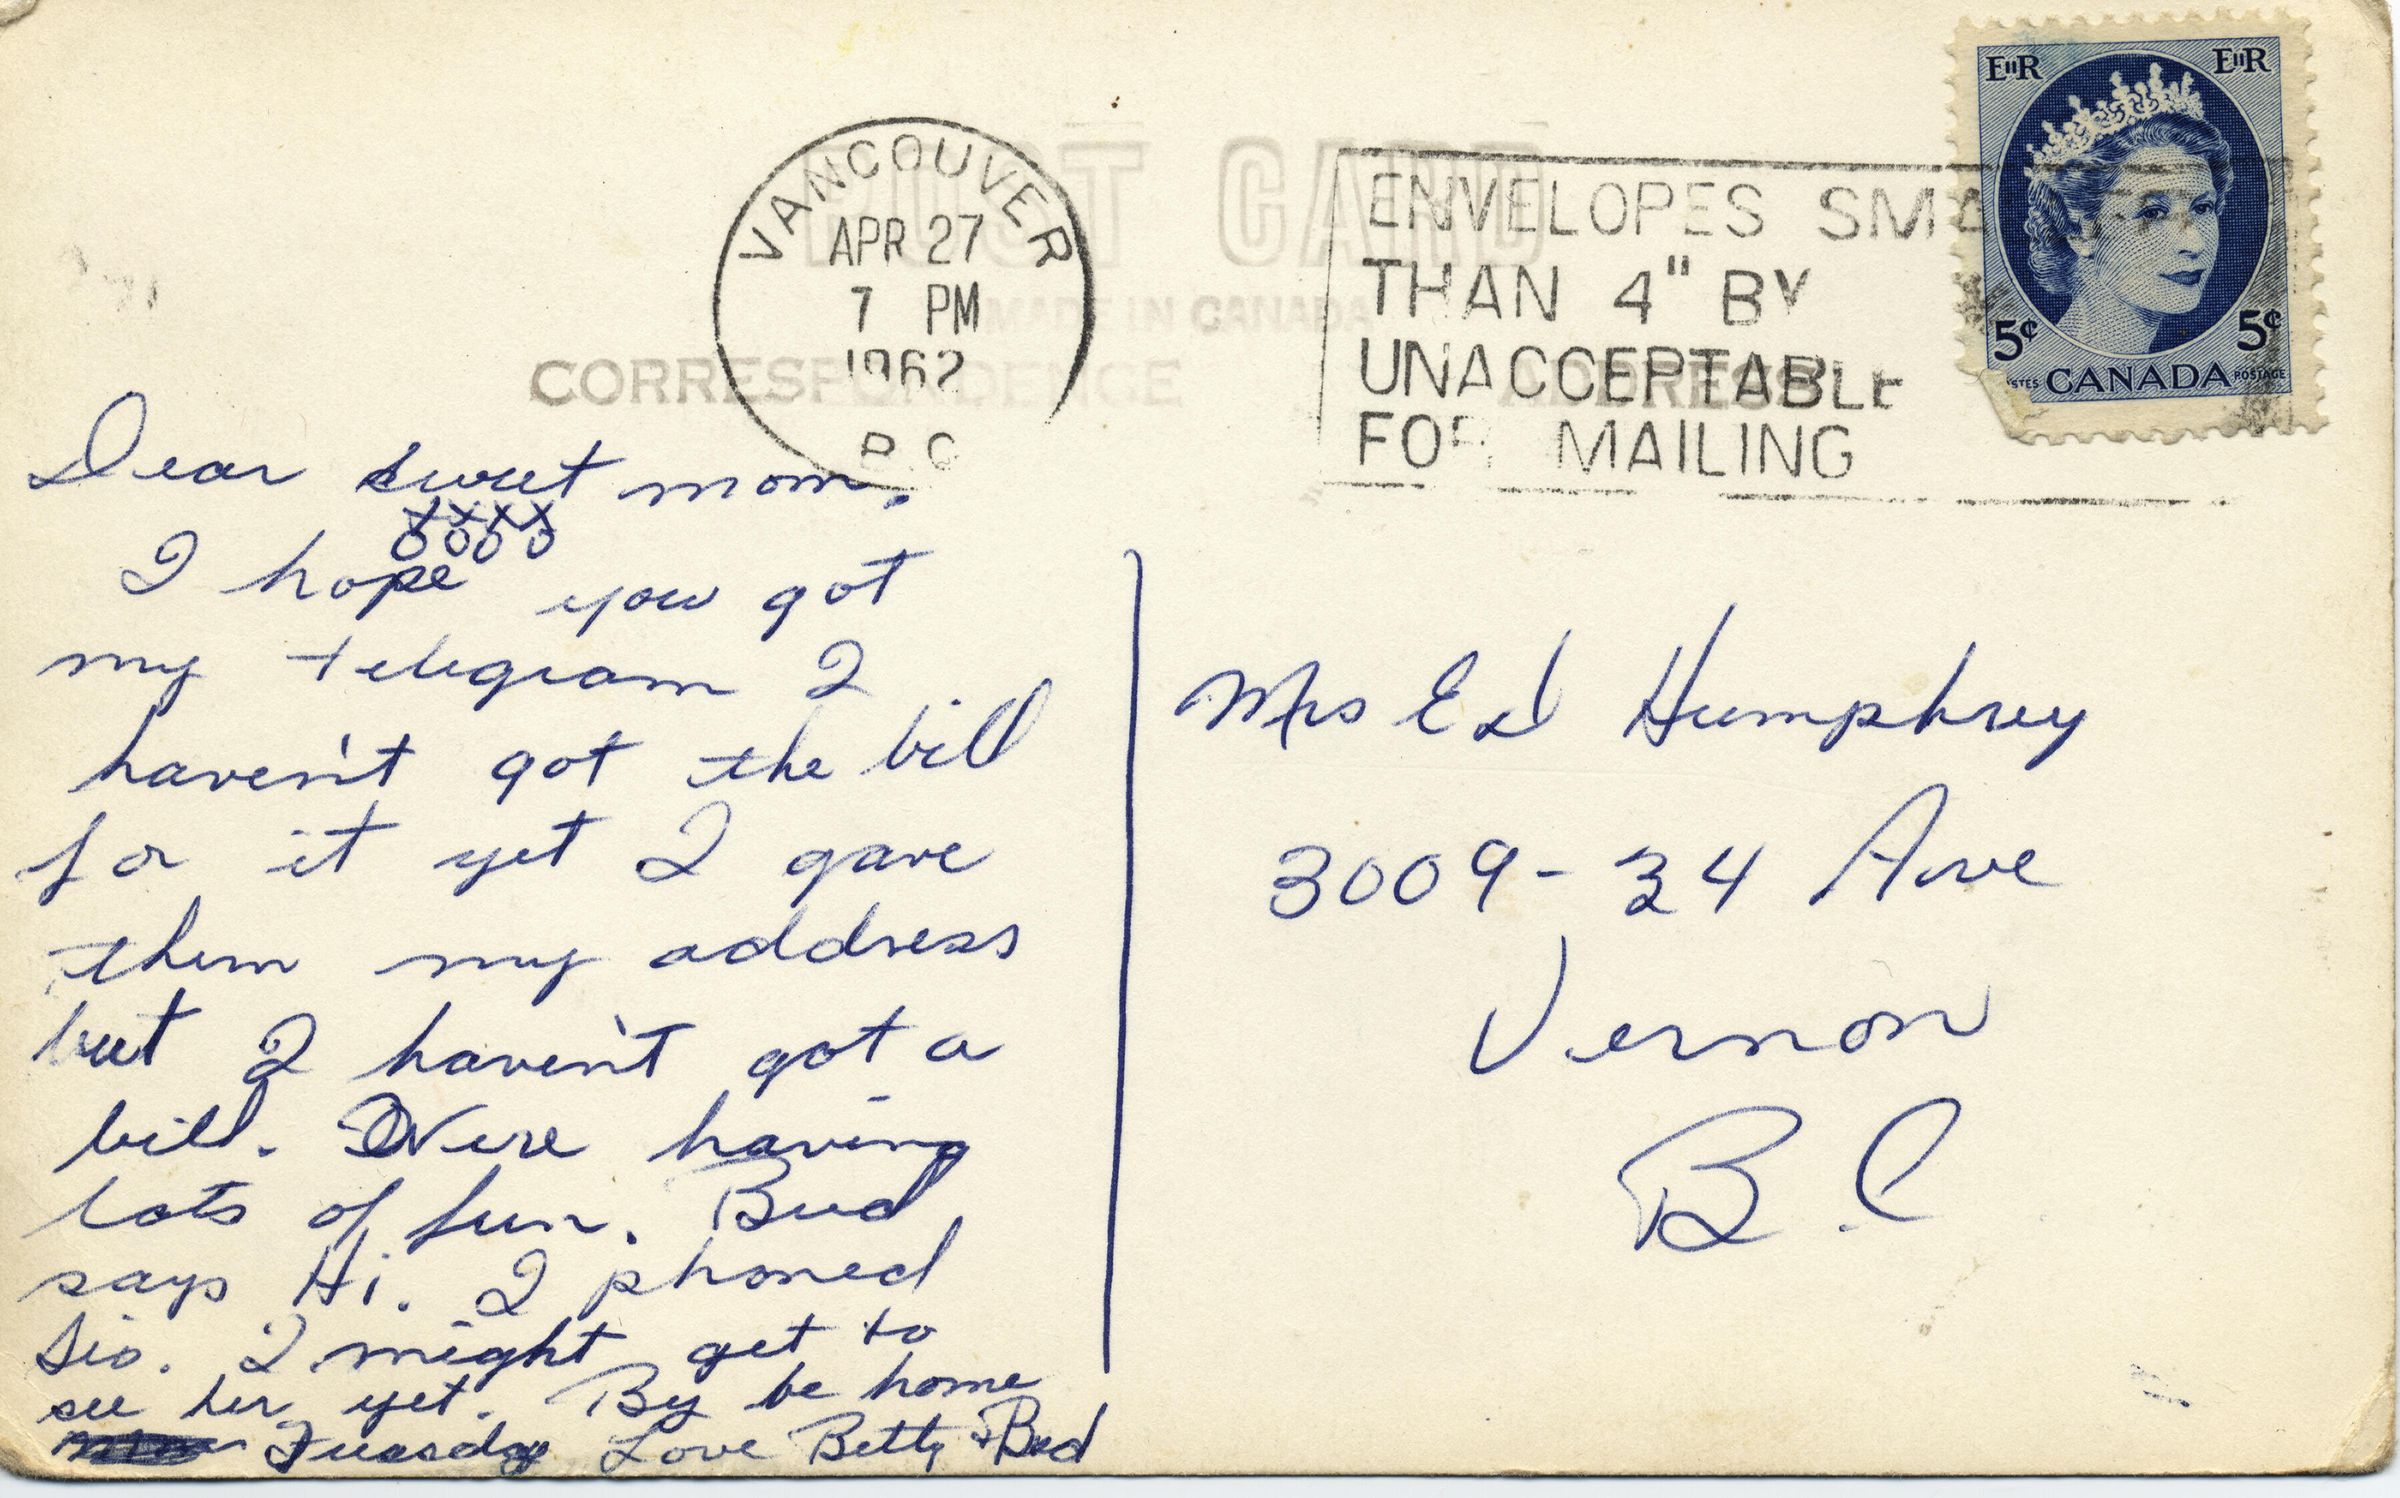 POST CARD
MADE IN CANADA
CORRESPONDENCE
ADDRESS
VANCOUVER
APR 27
7 PM
1962
B.C.
ENVELOPES SMA
THAN 4" BY
UNACCEPTABLE
FOR MAILING
EIIR EIIR
5¢ 5¢
POSTES CANADA POSTAGE
Dear sweet mom.
xxxx
oooo
I hope you got
my telegram I
haven't got the bill
for it yet I gave
them my address
but I haven't got a
bill. Were having
lots of fun. Bud
says Hi. I phoned
Sis. I might get to
see her yet. By be home
Tuesday Love Betty & Bud
Mrs Ed Humphrey
3009-34 Ave
Vernon
B.C